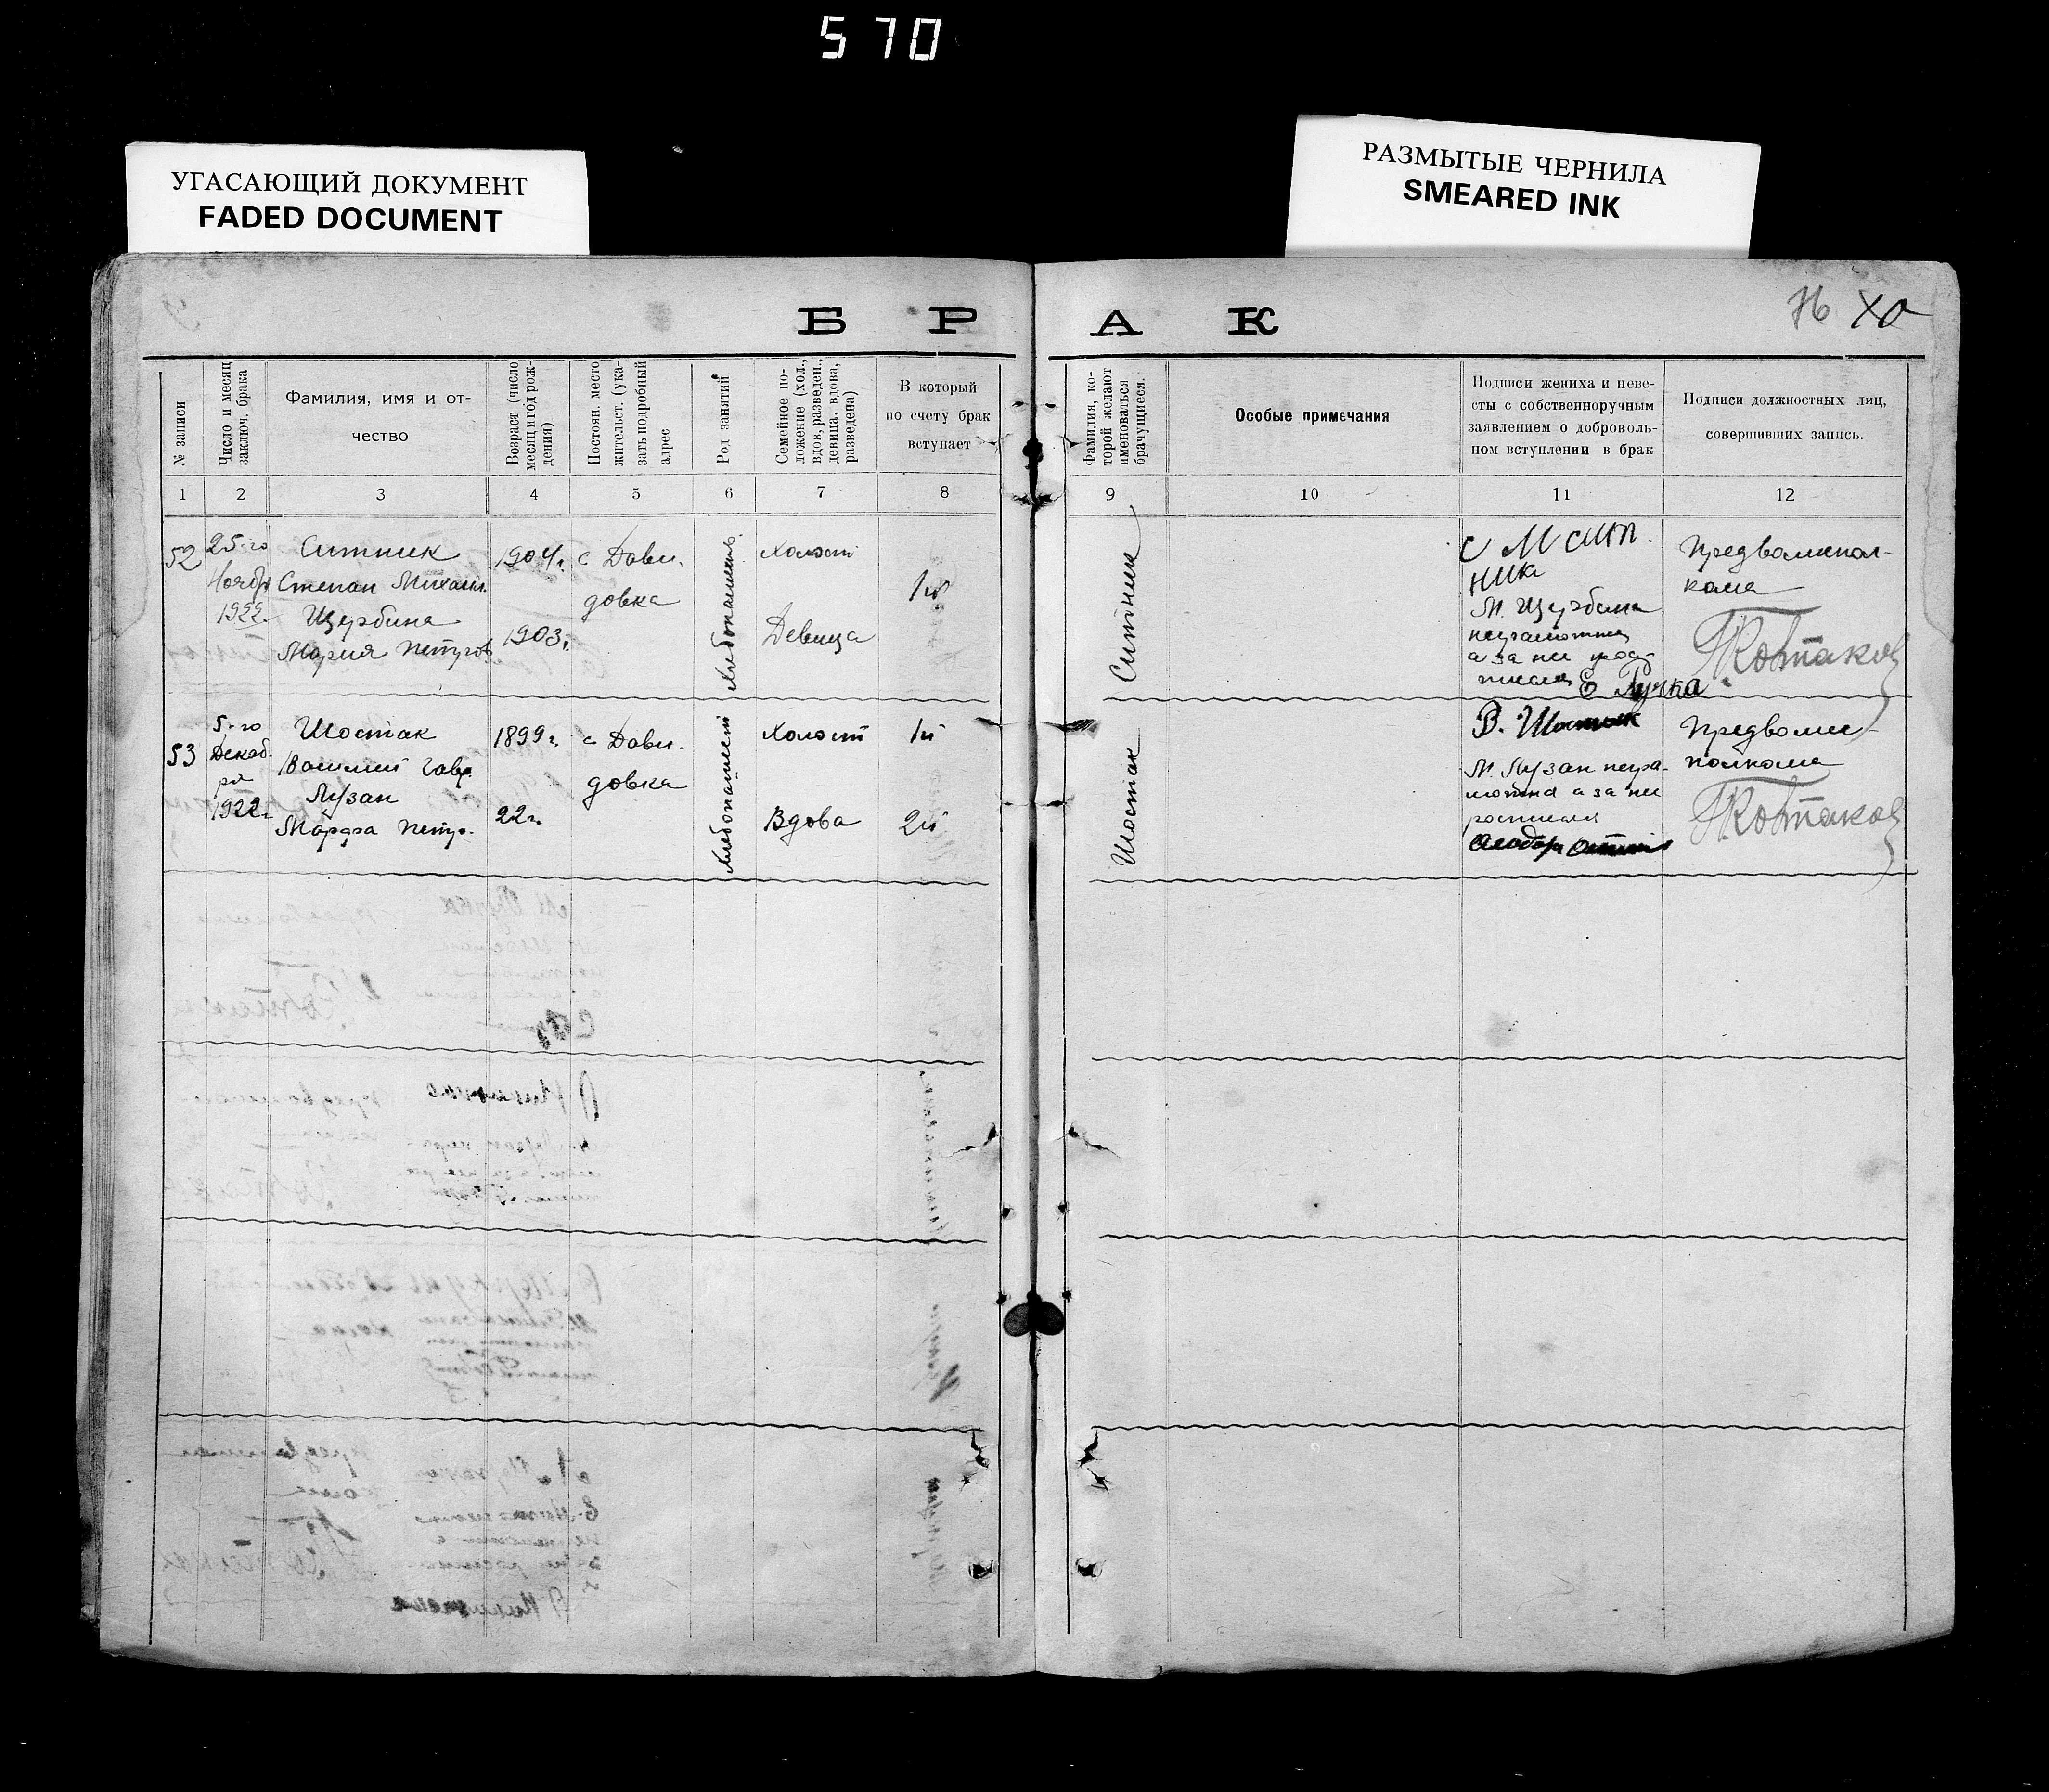 570
УГАСАЮЩИЙ ДОКУМЕНТ
FADED DOCUMENT
РАЗМЫТЫЕ ЧЕРНИЛА
SMEARED INK
БРАК
76
№ записи
Число и месяц
заключ. брака
Фамилия, имя и от-
чество
Возраст (число
месяц и год рож-
дения)
Постоян. место
жительст. (ука-
зать подробный
адрес
Род занятий
Семейное по-
ложение (хол.,
вдов, разведен.,
девица, вдова,
разведена)
В который
по счету брак
вступает
Фамилия, ко-
торой желают
именоваться
брачущиеся.
Особые примечания
Подписи жениха и неве-
сты с собственноручным
заявлением о доброволь-
ном вступлении в брак
Подписи должностных лиц,
совершивших запись.
1 2 3 4 5 6 7 8 9 10 11 12
52
25-го
Ноябр
1922
Ситник
Степан Михаил.
Щербина
Мария Петров
1904г.
1903г.
с Дави-
довка
Холост
Девица
1й
Ситник
С М Сит
ника
М. Щербина
неграмотна
а за нее рос-
писался Е Гучка
Предволиспол-
кома
53
5-го
Декаб-
ря
1922г
Шостак
Василий Гавр.
Лузан
Марфа Петр.
1899г.
22г.
с Дави-
довка
Хлебопашест
Холост
Вдова
1й
2й
Шостак
В. Шостак
М. Лузан негра-
мотна а за нее
росписался
Предволис-
полкома